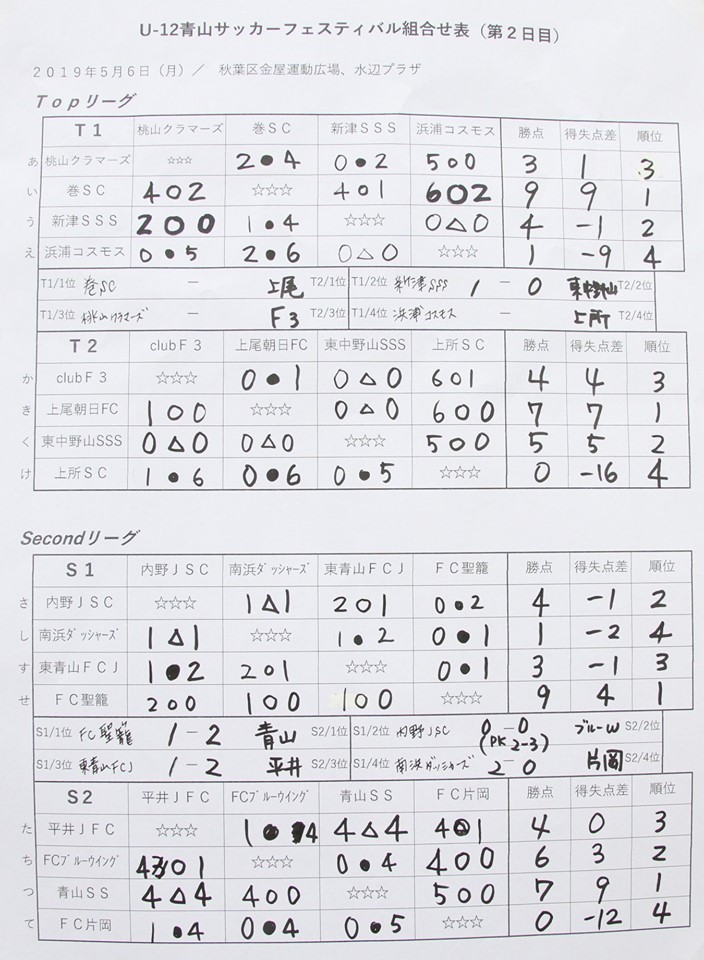 U-12青山サッカーフェスティバル組合せ表（第２日目）
２０１９年５月６日（月）／　秋葉区金屋運動広場、水辺プラザ
Ｔｏｐリーグ
Ｔ１ 桃山クラマーズ 巻ＳＣ 新津ＳＳＳ 浜浦コスモス 勝点 得失点差 順位
あ 桃山クラマーズ ☆☆☆ 2 ● 4 0 ● 2 5 ○ 0 3 1 3
い 巻ＳＣ 4 ○ 2 ☆☆☆ 4 ○ 1 6 ○ 2 9 9 1
う 新津ＳＳＳ 2 ○ 0 1 ● 4 ☆☆☆ 0 △ 0 4 -1 2
え 浜浦コスモス 0 ● 5 2 ● 6 0 △ 0 ☆☆☆ 1 -9 4
T1/1位 巻SC － 上尾 T2/1位 T1/2位 新津SSS 1 － 0 東中野山 T2/2位
T1/3位 桃山クラマーズ － F3 T2/3位 T1/4位 浜浦コスモス － 上所 T2/4位
Ｔ２ clubＦ３ 上尾朝日FC 東中野山SSS 上所ＳＣ 勝点 得失点差 順位
か clubＦ３ ☆☆☆ 0 ● 1 0 △ 0 6 ○ 1 4 4 3
き 上尾朝日FC 1 ○ 0 ☆☆☆ 0 △ 0 6 ○ 0 7 7 1
く 東中野山SSS 0 △ 0 0 △ 0 ☆☆☆ 5 ○ 0 5 5 2
け 上所ＳＣ 1 ● 6 0 ● 6 0 ● 5 ☆☆☆ 0 -16 4
Secondリーグ
Ｓ１ 内野ＪＳＣ 南浜ﾀﾞｯｼｬｰｽﾞ 東青山ＦＣＪ ＦＣ聖籠 勝点 得失点差 順位
さ 内野ＪＳＣ ☆☆☆ 1 △ 1 2 ○ 1 0 ● 2 4 -1 2
し 南浜ﾀﾞｯｼｬｰｽﾞ 1 △ 1 ☆☆☆ 1 ● 2 0 ● 1 1 -2 4
す 東青山ＦＣＪ 1 ● 2 2 ○ 1 ☆☆☆ 0 ● 1 3 -1 3
せ ＦＣ聖籠 2 ○ 0 1 ○ 0 1 ○ 0 ☆☆☆ 9 4 1
S1/1位 FC聖籠 1 － 2 青山 S2/1位 S1/2位 内野JSC 0 － 0 (PK 2-3) ブルーW S2/2位
S1/3位 東青山FCJ 1 － 2 平井 S2/3位 S1/4位 南浜ダッシャーズ 2 － 0 片岡 S2/4位
Ｓ２ 平井ＪＦＣ FCﾌﾞﾙｰｳｲﾝｸﾞ 青山ＳＳ ＦＣ片岡 勝点 得失点差 順位
た 平井ＪＦＣ ☆☆☆ 1 ● 4 4 △ 4 4 ○ 1 4 0 3
ち FCﾌﾞﾙｰｳｲﾝｸﾞ 4 ○ 1 ☆☆☆ 0 ● 4 4 ○ 0 6 3 2
つ 青山ＳＳ 4 △ 4 4 ○ 0 ☆☆☆ 5 ○ 0 7 9 1
て ＦＣ片岡 1 ● 4 0 ● 4 0 ● 5 ☆☆☆ 0 -12 4